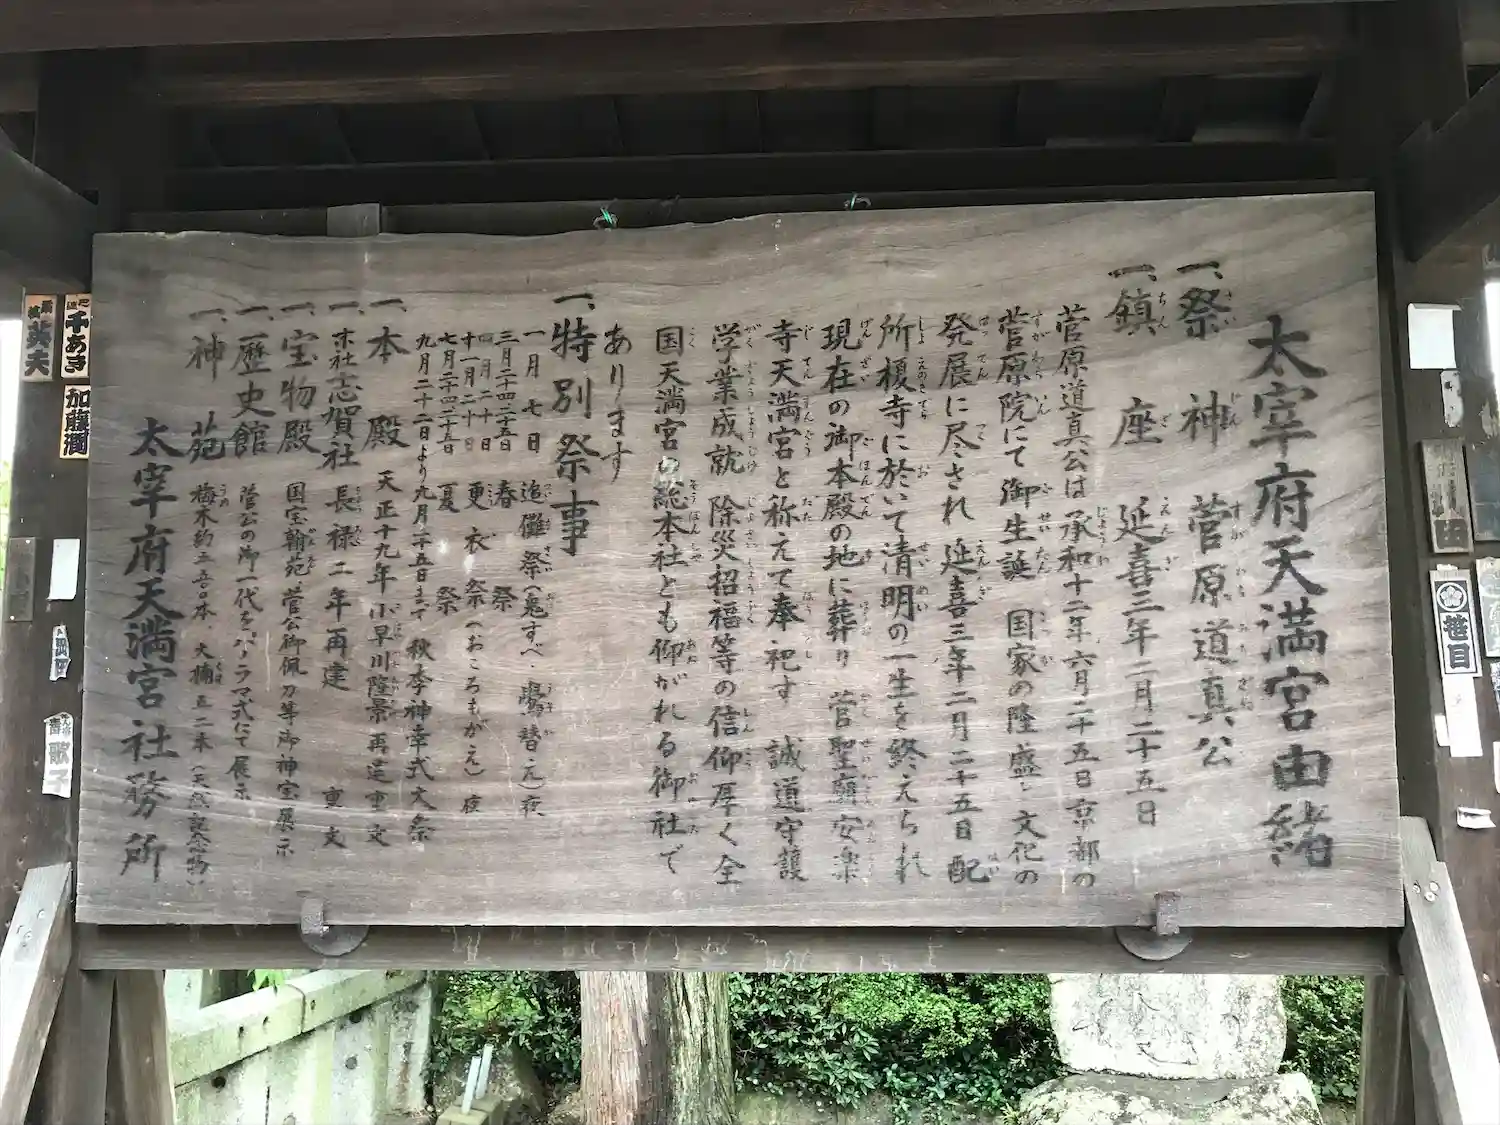 太宰府天満宮由緒
一、祭神 菅原道真公
一、鎮座 延喜三年二月二十五日
菅原道真公は承和十二年六月二十五日京都の
菅原院にて御生誕 国家の隆盛と文化の
発展に尽され 延喜三年二月二十五日配
所榎寺に於いて清明の一生を終えられ
現在の御本殿の地に葬り 菅聖廟安楽
寺天満宮と称えて奉祀す 誠道守護
学業成就 除災招福等の信仰厚く全
国天満宮の総本社とも仰がれる御社で
あります
一、特別祭事
一月七日 追儺祭(鬼すべ、鷽替え)夜
三月二十四二十五日
四月二十日 春祭
十一月二十日 更衣祭(おころもがえ)夜
七月二十四二十五日 夏祭
九月二十二日より九月二十五日まで 秋季神幸式大祭
一、本殿 天正十九年小早川隆景再建重文
一、末社志賀社 長禄二年再建 重文
一、宝物殿 国宝翰苑、菅公御佩刀等御神宝展示
一、歴史館 菅公の御一代をパノラマ式にて展示
一、神苑 梅木約五〇〇〇本、大樟五二本(天然記念物)
太宰府天満宮社務所
英夫
千あき
加藤潤
岡田
歌子
笹目